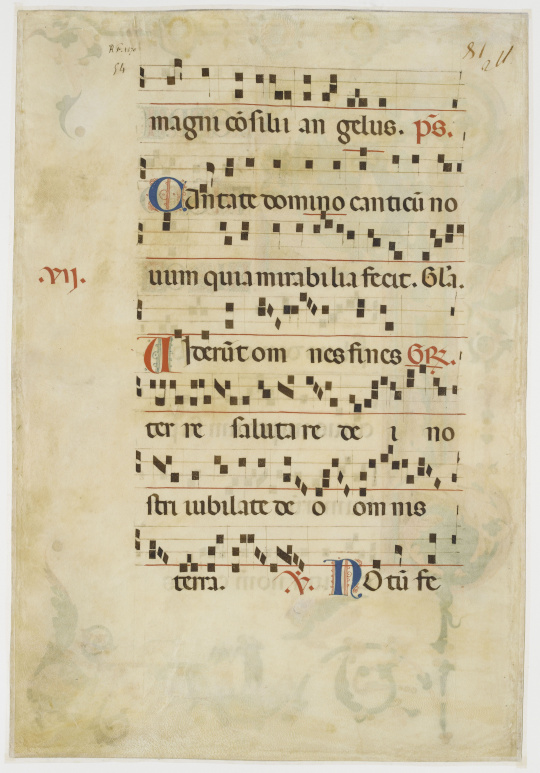 81 11
54
magni cõsilii an gelus. p̃s.
Cantate domino canticũ no
.vij.
uum quia mirabilia fecit. Gl̃a.
Viderũt om nes fines GR̃.
ter re saluta re de i no
stri iubilate de o om nis
terra. V̇. Notũ fe